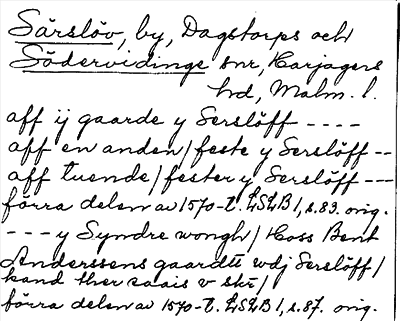 Särslöv, by, Dagstorps och
Södervidinge snr, Harjagers
hd, Malm. l.
aff ij gaarde y Serslöff ----
aff en anden/feste y Serslöff --
aff tuende/fester y Serslöff ---
förra delen av 1570-t. LSLB 1, s. 83. orig.
--- y Syndre wongh/ Hoss Bent
Anderssens gaardtt wdj Serslöff/
kand ther saais v
förra delen av 1570-t. LSLB 1, s. 87. orig.